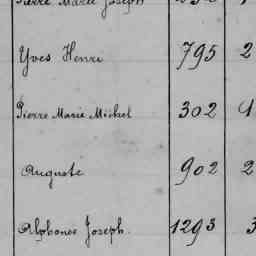 Pierre Marie Joseph
Yves Henri 795 2
Pierre Marie Michel 302 4
Auguste 902 2
Alphonse Joseph. 1293 3